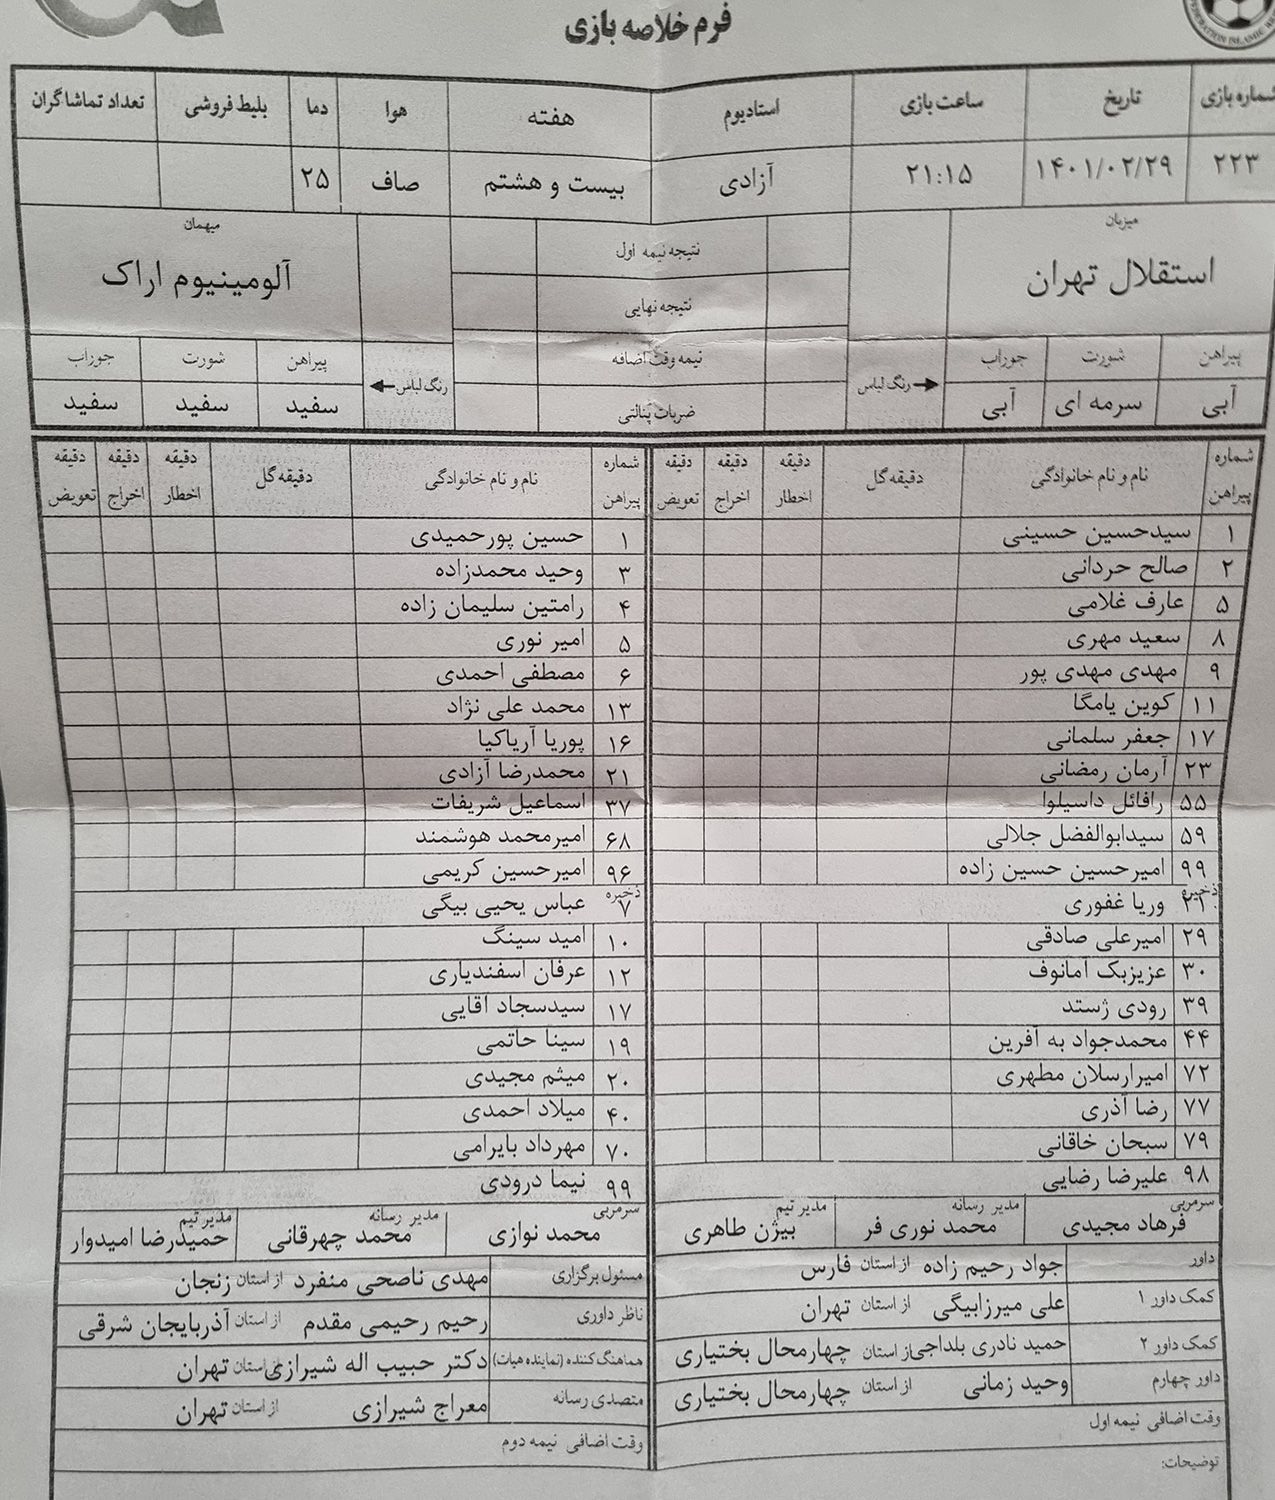 فرم خلاصه بازی
شماره بازی تاریخ ساعت بازی استادیوم هفته هوا دما بلیط فروشی تعداد تماشاگران
۲۲۳ ۱۴۰۱/۰۲/۲۹ ۲۱:۱۵ آزادی بیست و هشتم صاف ۲۵
میزبان نتیجه نیمه اول میهمان
استقلال تهران نتیجه نهایی آلومینیوم اراک
پیراهن شورت جوراب رنگ لباس نیمه وقت اضافه رنگ لباس پیراهن شورت جوراب
آبی سرمه ای آبی ضربات پنالتی سفید سفید سفید
شماره پیراهن نام و نام خانوادگی دقیقه گل دقیقه اخطار دقیقه اخراج دقیقه تعویض شماره پیراهن نام و نام خانوادگی دقیقه گل دقیقه اخطار دقیقه اخراج دقیقه تعویض
۱ سیدحسین حسینی ۱ حسین پورحمیدی
۲ صالح حردانی ۳ وحید محمدزاده
۵ عارف غلامی ۴ رامتین سلیمان زاده
۸ سعید مهری ۵ امیر نوری
۹ مهدی مهدی پور ۶ مصطفی احمدی
۱۱ کوین یامگا ۱۳ محمد علی نژاد
۱۷ جعفر سلمانی ۱۶ پوریا آریاکیا
۲۳ آرمان رمضانی ۲۱ محمدرضا آزادی
۵۵ رافائل داسیلوا ۳۷ اسماعیل شریفات
۵۹ سیدابوالفضل جلالی ۶۸ امیرمحمد هوشمند
۹۹ امیرحسین حسین زاده ۹۶ امیرحسین کریمی
ذخیره ۲۱ وریا غفوری ذخیره ۷ عباس یحیی بیگی
۲۹ امیرعلی صادقی ۱۰ امید سینگ
۳۰ عزیزبک آمانوف ۱۲ عرفان اسفندیاری
۳۹ رودی ژستد ۱۷ سیدسجاد آقایی
۴۴ محمدجواد به آفرین ۱۹ سینا حاتمی
۷۲ امیرارسلان مطهری ۲۰ میثم مجیدی
۷۷ رضا آذری ۴۰ میلاد احمدی
۷۹ سبحان خاقانی ۷۰ مهرداد بایرامی
۹۸ علیرضا رضایی ۹۹ نیما درودی
سرمربی فرهاد مجیدی مدیر رسانه محمد نوری فر مدیر تیم بیژن طاهری سرمربی محمد نوازی مدیر رسانه محمد چهرقانی مدیر تیم حمیدرضا امیدوار
داور جواد رحیم زاده از استان فارس مسئول برگزاری مهدی ناصحی منفرد از استان زنجان
کمک داور ۱ علی میرزابیگی از استان تهران ناظر داوری رحیم رحیمی مقدم از استان آذربایجان شرقی
کمک داور ۲ حمید نادری بلداجی از استان چهارمحال بختیاری هماهنگ کننده (نماینده هیات) دکتر حبیب اله شیرازی از استان تهران
داور چهارم وحید زمانی از استان چهارمحال بختیاری متصدی رسانه معراج شیرازی از استان تهران
وقت اضافی نیمه اول وقت اضافی نیمه دوم
توضیحات: